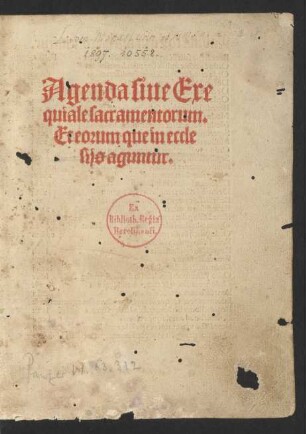 1897. 10558.
Agenda siue Exe
quiale sacramentorum.
Et eorum que in eccle
sijs aguntur.
Ex
Biblioth. Regia
Berolinensi.